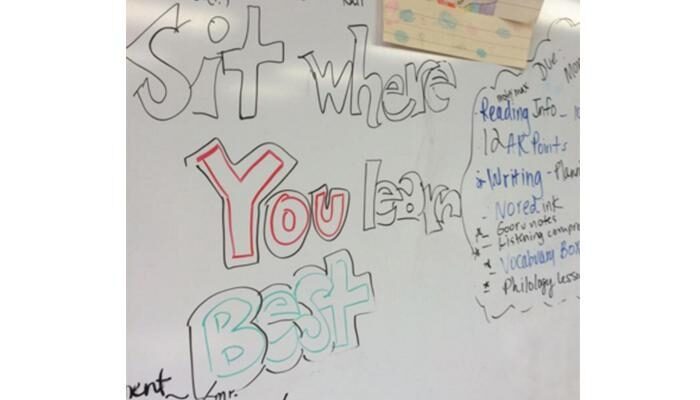 Sit where
You learn
Best
Due:
Reading Info -
12 AR Points
Writing -
- Nored ink
Gooru notes
Listening
Vocabulary Box
Philology
mr.